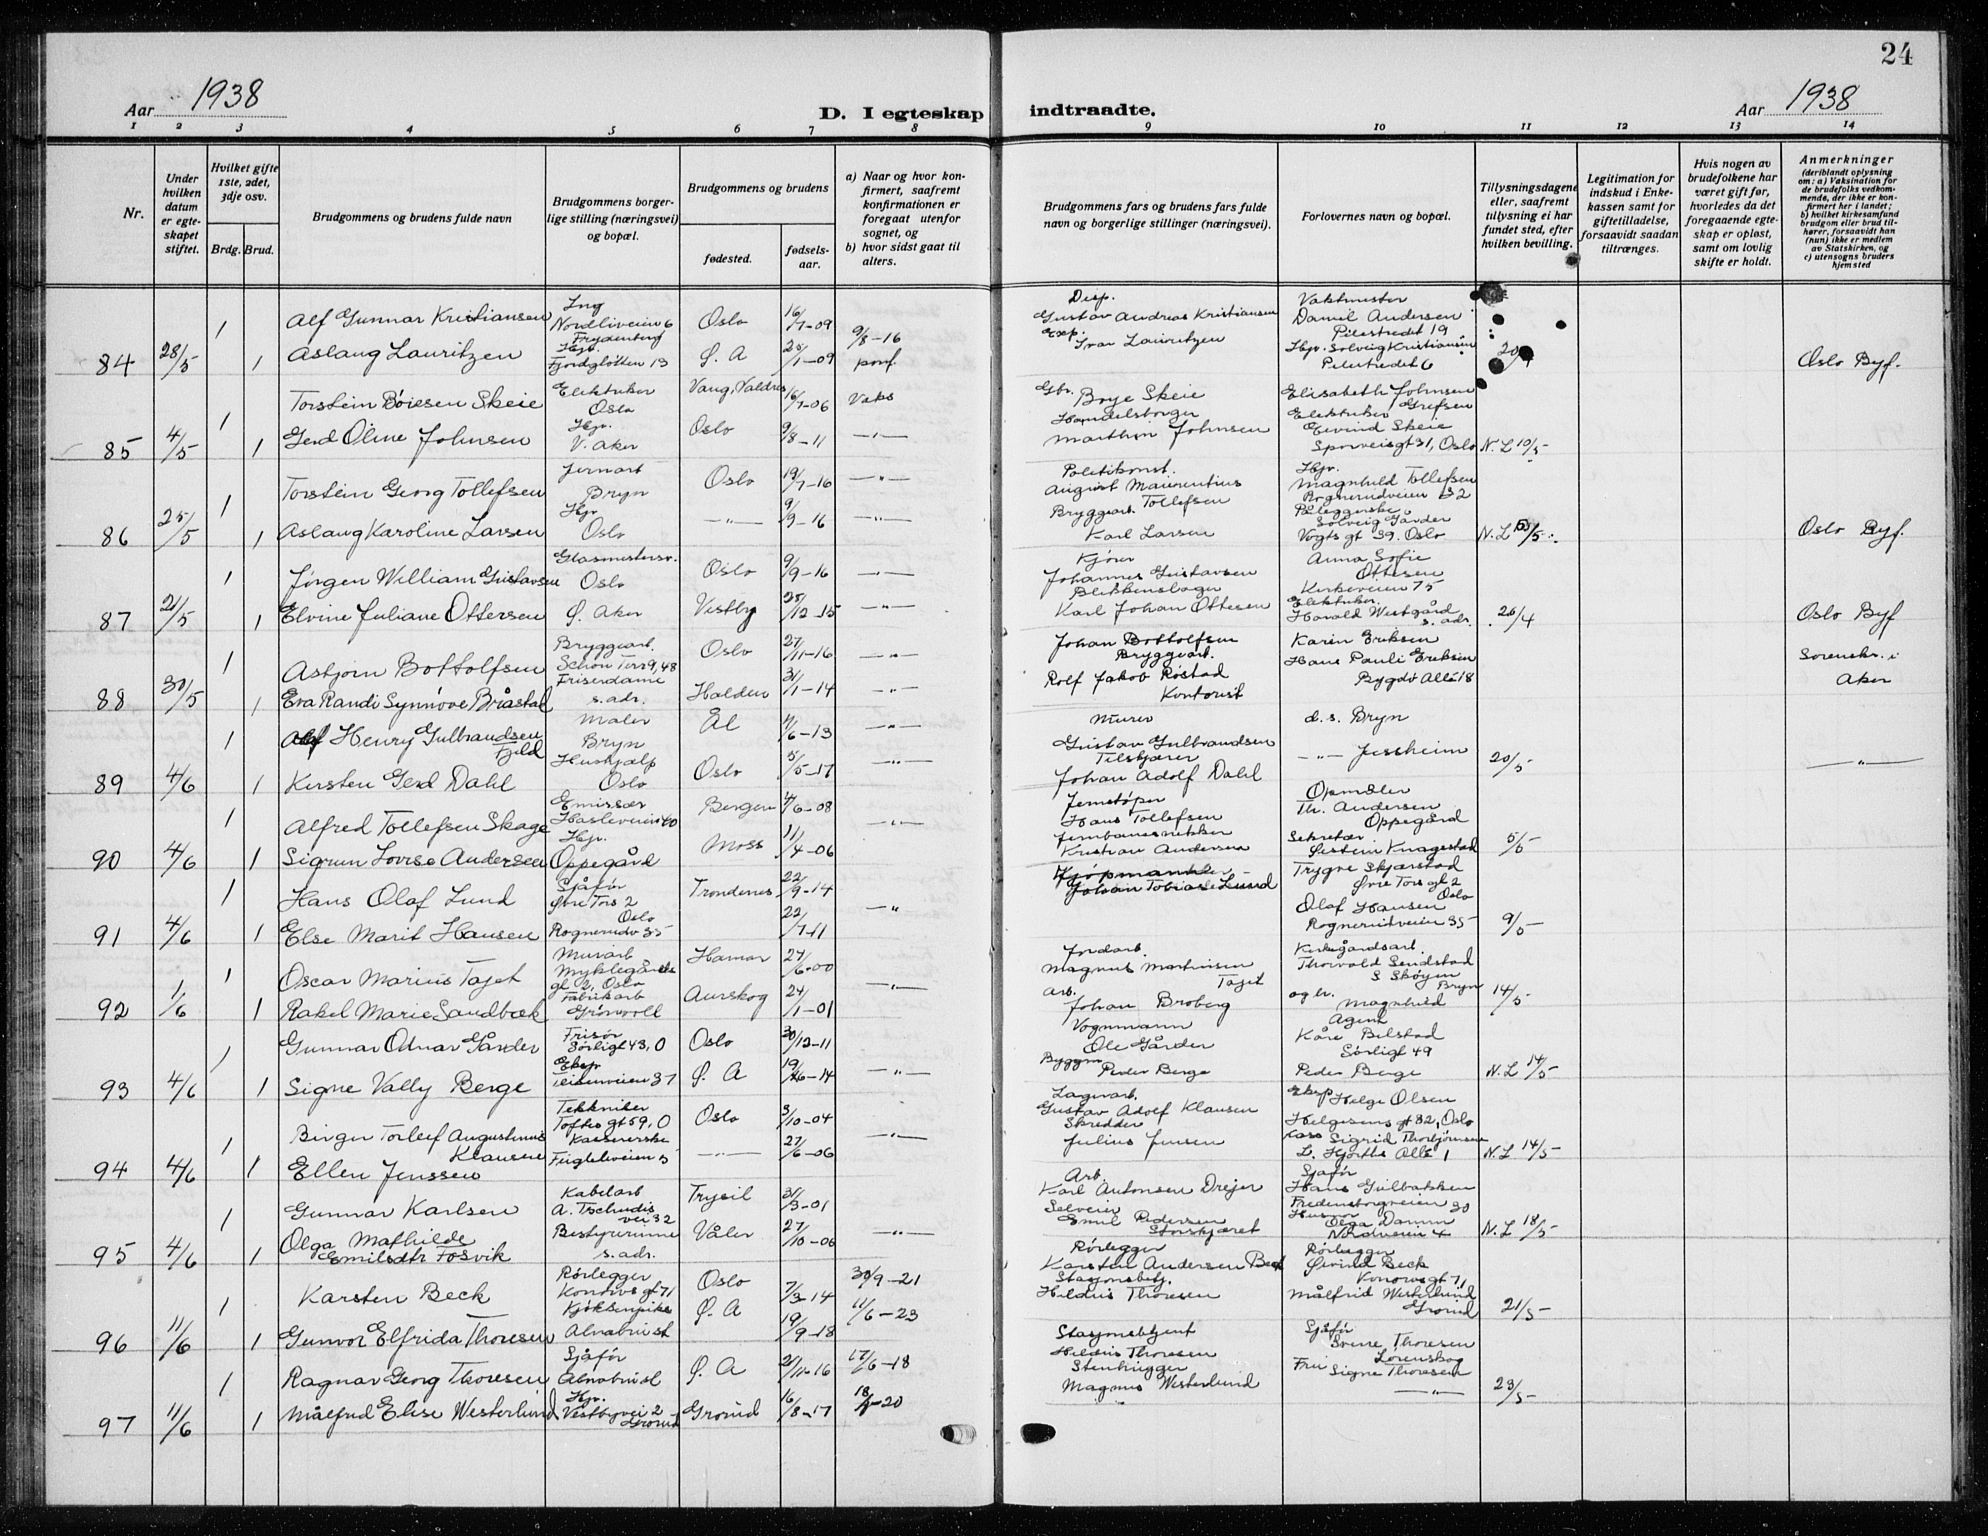 24
Aar 1938
D. I egteskap indtraadte.
Aar 1938
1 2 3 4 5 6 7 8 9 10 11 12 13 14
Nr.
Under hvilken datum er egteskapet stiftet.
Hvilket gifte 1ste, 2det, 3dje osv.
Brdg. Brud.
Brudgommens og brudens fulde navn
Brudgommens borgerlige stilling (næringsvei) og bopæl.
Brudgommens og brudens
fødested.
fødselsaar.
a) Naar og hvor konfirmert, saafremt konfirmationen er foregaat utenfor sognet, og
b) hvor sidst gaat til alters.
Brudgommens fars og brudens fars fulde navn og borgerlige stillinger (næringsvei).
Forlovernes navn og bopæl.
Tillysningsdagene eller, saafremt tillysning ei har fundet sted, efter hvilken bevilling.
Legitimation for indskud i Enkekassen samt for giftetilladelse, forsaavidt saadan tiltrænges.
Hvis nogen av brudefolkene har været gift før, hvorledes da det foregaaende egteskap er opløst, samt om lovlig skifte er holdt.
Anmerkninger (deriblandt oplysning om: a) Vaksination for de brudefolks vedkommende, der ikke er konfirmert her i landet; b) hvilket kirkesamfund brudgom eller brud tilhører, forsaavidt han (hun) ikke er medlem av Statskirken, og c) utensogns bruders hjemsted
84 28/5 1 Alf Gunnar Kristiansen Ing Nordliveien 6 Oslo 16/7-09 9/8-16 Disp. Gustav Andreas Kristiansen Vaktmester Daniel Andersen Pilestredet 19
1 Aslaug Lauritzen Hjv. Fjordgløtten 13 Ø. A 1-09 Eksp. Ivar Lauritzen Hjv. Solveig Kristiansen Pilestredet 6 Oslo Byf.
85 4/5 1 Torstein Böiesen Skeie Elektriker Oslo Vang, Valdres 16/7-06 Vaks Gbr. Boye Skeie Elisabeth Johnsen Grefsen
1 Gerd Oline Johnsen Hjv. V. Aker Oslo 9/8-11 -"- Handelsborger Marthin Johnsen Elektriker Eivind Skeie Sporveisgt 31, Oslo N.L 10/5
86 25/5 1 Torstein Georg Tollefsen Jernarb Bryn Oslo 19/7-16 -"- Politikonst. August Maurentius Tollefsen Hjv. Magnhild Tollefsen Rognerudveien 32
1 Aslaug Karoline Larsen Hjv Oslo -"- 9/9-16 -"- Bryggearb. Karl Larsen Solveig Gander Vogts gt 39. Oslo N.L Oslo Byf.
87 21/5 1 Jørgen William Gustavsen Glasmestersv. Oslo Oslo 9/9-16 -"- Kjører Johannes Gustavsen Anna Sofie Ottesen Kirkeveien 75
1 Elvine Juliane Ottersen Ø. Aker Vestby 25/12-15 -"- Blikkenslager Karl Johan Ottesen Elektriker Harald Westgård s. adr. 26/4 Oslo Byf
88 30/5 1 Asbjørn Bottolfsen Bryggearb. Schøn Terr 9, 48 Oslo 27/11-16 -"- Johan Bottolfsen Bryggearb. Karin Eriksen Sorenskr. i Aker
1 Eva Randi Synnöve Bråstad Friserdame s. adr. Halden 31/1-14 -"- Rolf Jakob Röstad Kontorist Hans Pauli Eriksen Bygdø Alle 18
89 4/6 1 Alf Henry Gulbrandsen Fjeld Maler Bryn Ål 4/6-13 -"- Murer Gustav Gulbrandsen d. s. Bryn
1 Kirsten Gerd Dahl Hushjælp Oslo Oslo 5/5-17 -"- Tilskjærer Johan Adolf Dahl -"- Jessheim 20/5 -"-
90 4/6 1 Alfred Tollefsen Skage Emissær Hasleveien 40 Bergen 4/6-08 -"- Jernstøper Hans Tollefsen Opmåler Th. Andersen Oppegård
1 Sigrun Lovise Andersen Hjv. Oppegård Moss 11/4-06 Jernbanesnekker Kristian Andersen Sekretær Øistein Knagestad 5/5
91 4/6 1 Hans Olaf Lund Sjåfør Øvre Torv 2 Oslo Trondenes 22/9-14 -"- Kjøpmand Johan Tobias Lund Trygve Skjærstad Øvre Torv gt 2 Oslo
1 Else Marit Hansen Rognerudv 35 22/7-11 Olaf Hansen Rognerudveien 35 9/5
92 1/6 1 Oscar Marius Tajet Murarb Myklegårds gt 2, Oslo Hamar 27/6-00 -"- Jordarb. Magnus Martinsen Tajet Kirkegårdsarb. Thorvald Sendstad S Skøyen Bryn
1 Rakel Marie Sandbæk Fabrikarb Grönvoll Aurskog 24/1-01 Arb. Johan Broberg og hr. Magnhild 14/5
93 4/6 1 Gunnar Odvar Gårder Frisør Sørligt 43, O Oslo 30/12-11 Vognmann Ole Gårder Agent Kåre Bilstad Sørligt 49
1 Signe Vally Berge Eksp Teisenveien 37 Ø. A 19/6-14 -"- Byggm Peder Berge Peder Berge N.L 14/5
94 4/6 1 Birger Torleif Augustinus Klausen Tekniker Toftes gt 59, O Oslo 3/10-04 Lagerarb. Gustav Adolf Klausen Eksp Helge Olsen Helgesens gt 82, Oslo
1 Ellen Jenssen Kassererske Fugleliveien 5 -"- 27/6-06 -"- Skredder Julius Jensen Kass Sigrid Thorbjørnsen L. Hjorths Allé 1 N.L 14/5
95 4/6 1 Gunnar Karlsen Kabelarb A. Tschudis vei 32 Trysil 31/3-01 Arb. Karl Antonsen Drejer Sjåfør Hans Gulbakken Fredensborgveien 30
1 Olga Mathilde Emilsdtr Fosvik Bestyrerinne s. adr. Våler 27/10-06 -"- Selveier Emil Pedersen Storskjæret Husmor Olga Damm Nordveien 4 N.L 18/5
96 11/6 1 Karsten Beck Rørlegger Konows gt 71 Oslo 7/3-14 30/9-21 Rørlegger Karsten Andersen Beck Rørlegger Øivind Beck Konows gt 71
1 Gunvor Elfrida Thoresen Kjøkkenpike Alnabru st Ø. A 19/9-18 11/6-23 Stasjonsbetj. Hildus Thoresen Målfrid Westerlund Grorud 21/5
97 11/6 1 Ragnar Georg Thoresen Sjåfør Alnabru st Ø. A 21/11-16 17/6-18 Stasjonsbetjent Hildus Thoresen Sjåfør Sverre Thoresen Lørenskog
1 Målfrid Elise Westerlund Hjv. Vestbyvei 2 Grorud Grorud 16/8-17 18/-20 Stenhugger Magnus Westerlund Fru Signe Thoresen -"- 23/5